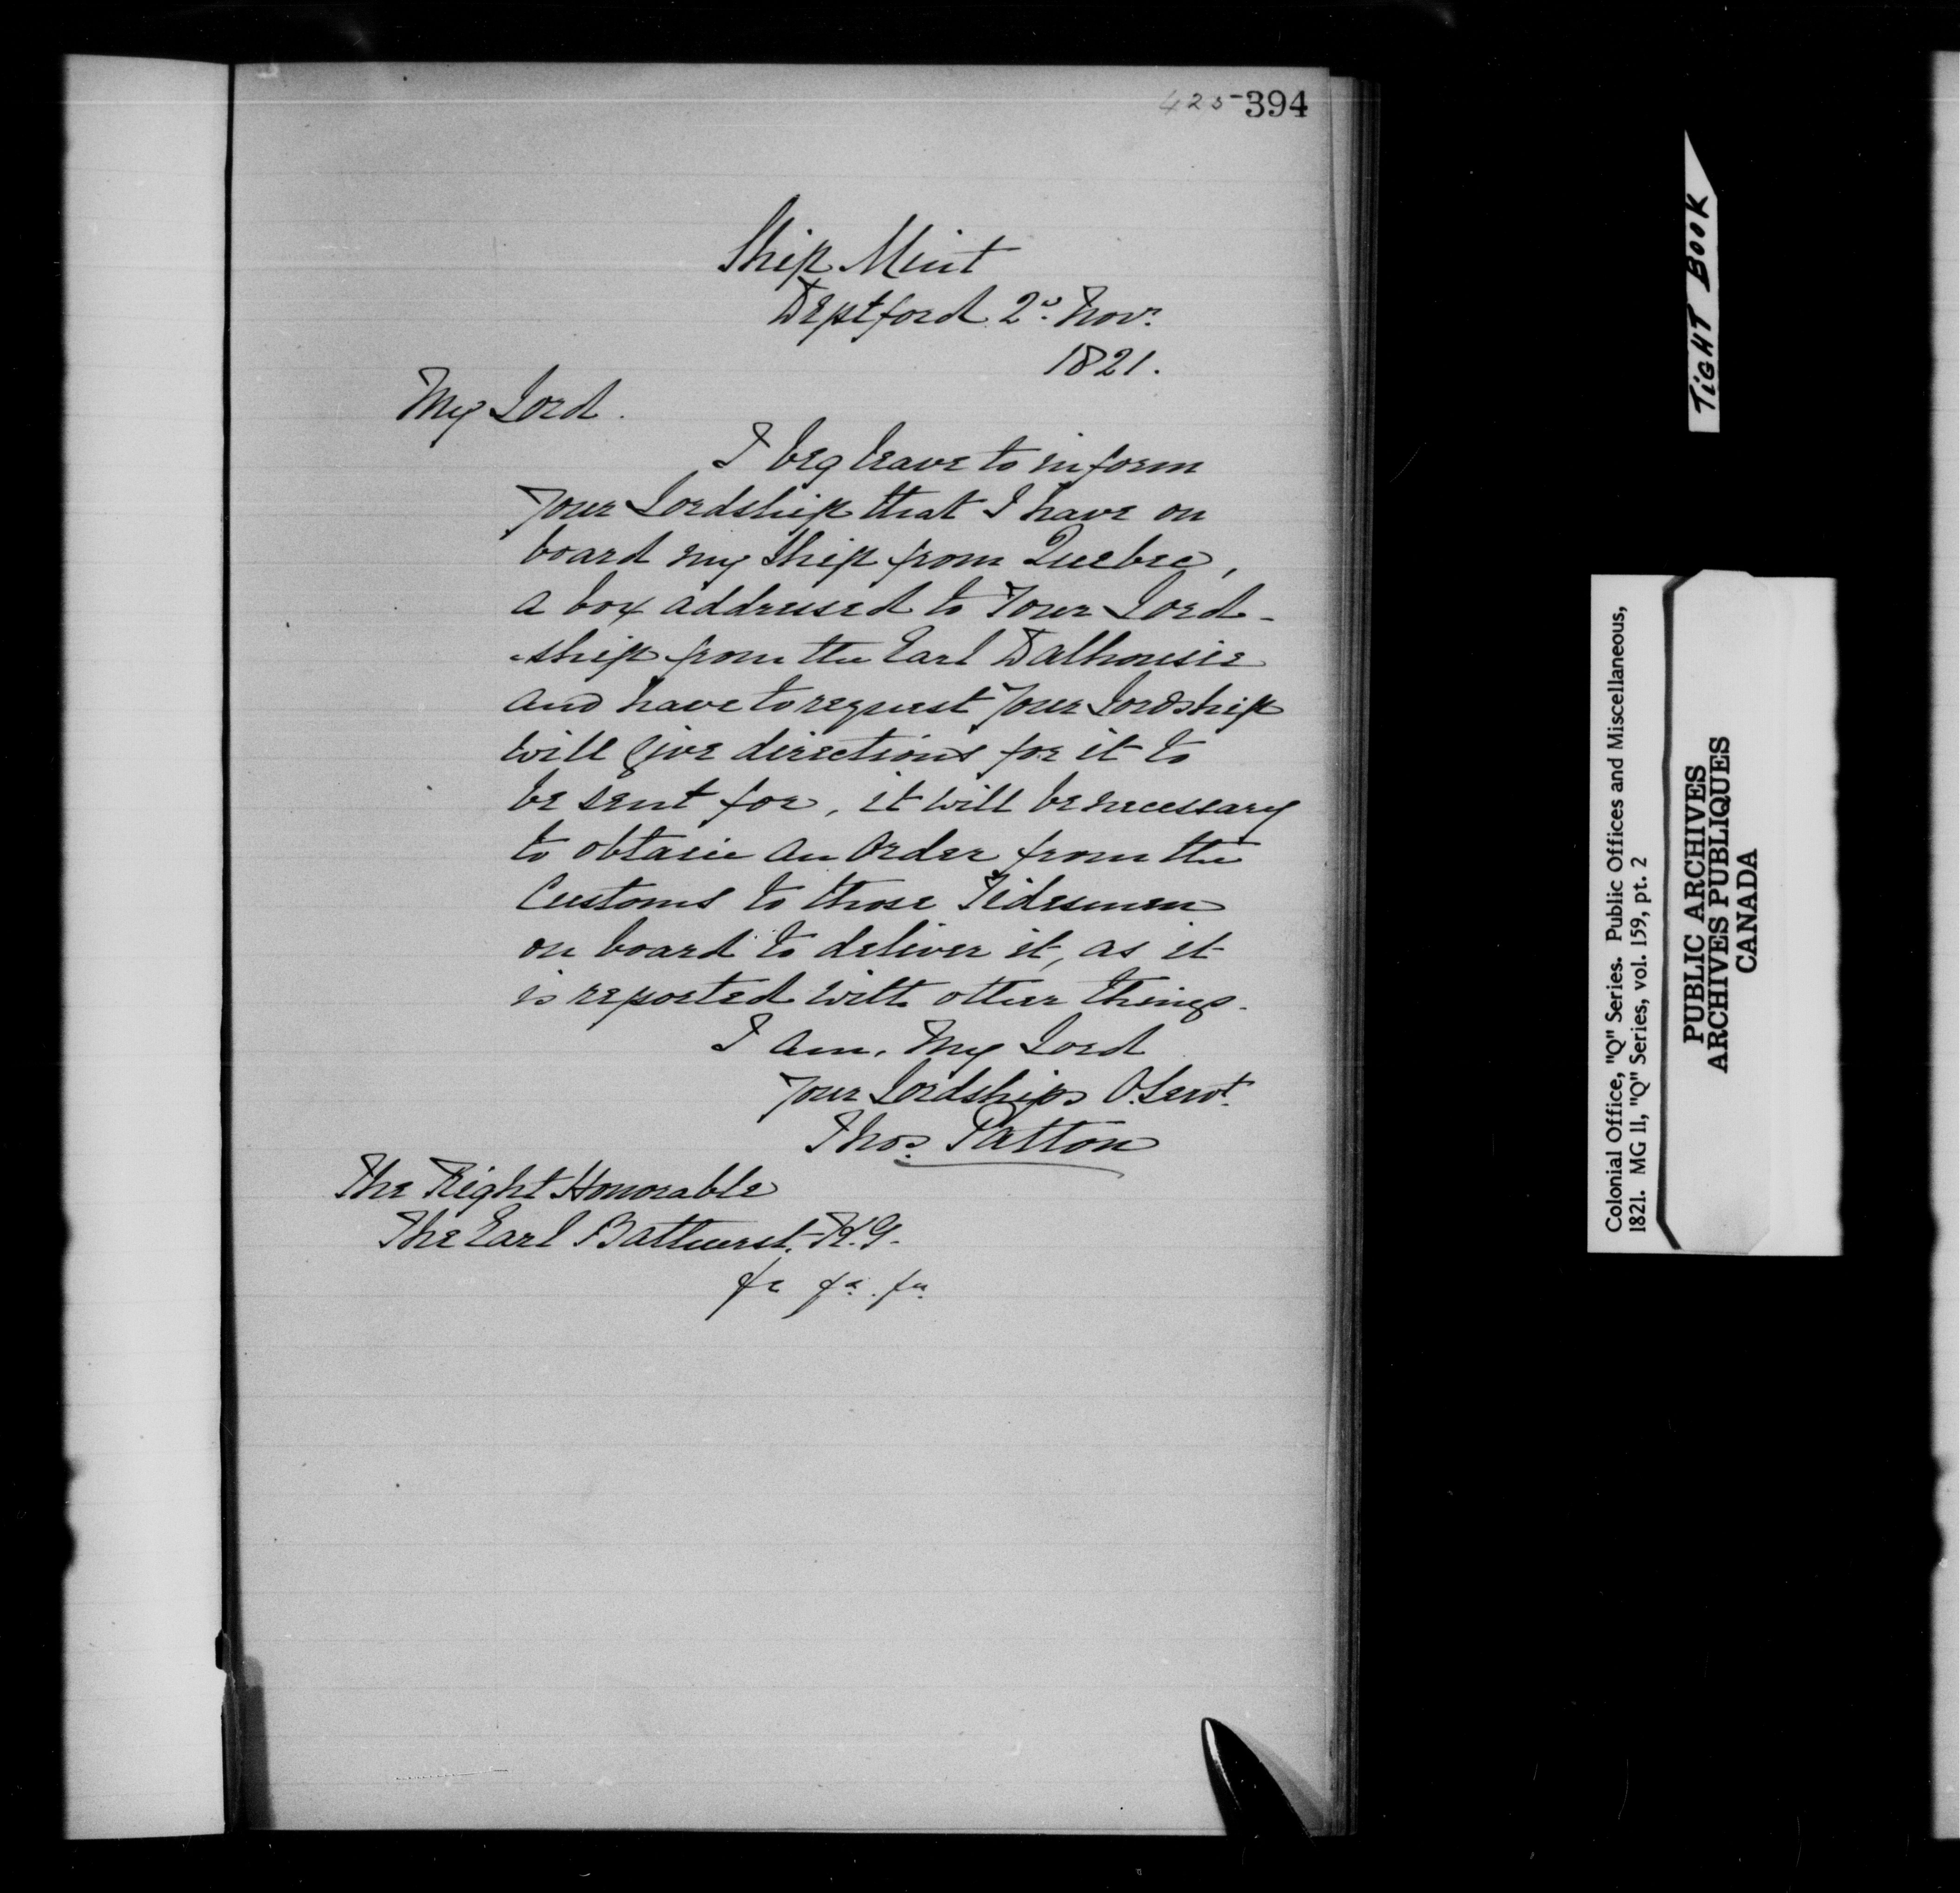 425 394
Ship Mint
Deptford 2d. Novr.
1821.
My Lord.
I beg leave to inform
Your Lordship that I have on
board my Ship from Quebec,
a box addressed to Your Lord-
-ship from the Earl Dalhousie
and have to request Your Lordship
will give directions for it to
be sent for, it will be necessary
to obtain an Order from the
Customs to those Tidesmen
on board to deliver it, as it
is reported with other things.
I am, My Lord
Your Lordships O. Servt.
Thos. Patton
The Right Honorable
The Earl Bathurst, K.G.
&c &c. &c.
TIGHT BOOK
Colonial Office, "Q" Series. Public Offices and Miscellaneous,
1821. MG 11, "Q" Series, vol. 159, pt. 2
PUBLIC ARCHIVES
ARCHIVES PUBLIQUES
CANADA